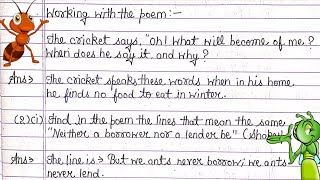 Working with the poem:-
The cricket says, "Oh! what will become of me?
when does he say it and why?
Ans⇒ The cricket speaks these words when in his home
he finds no food to eat in winter.
(2)(i) Find in the poem the lines that mean the same
"Neither a borrower nor a lender be" (Shakes
Ans⇒ The line is → But we ants never borrow; we ants
never lend.